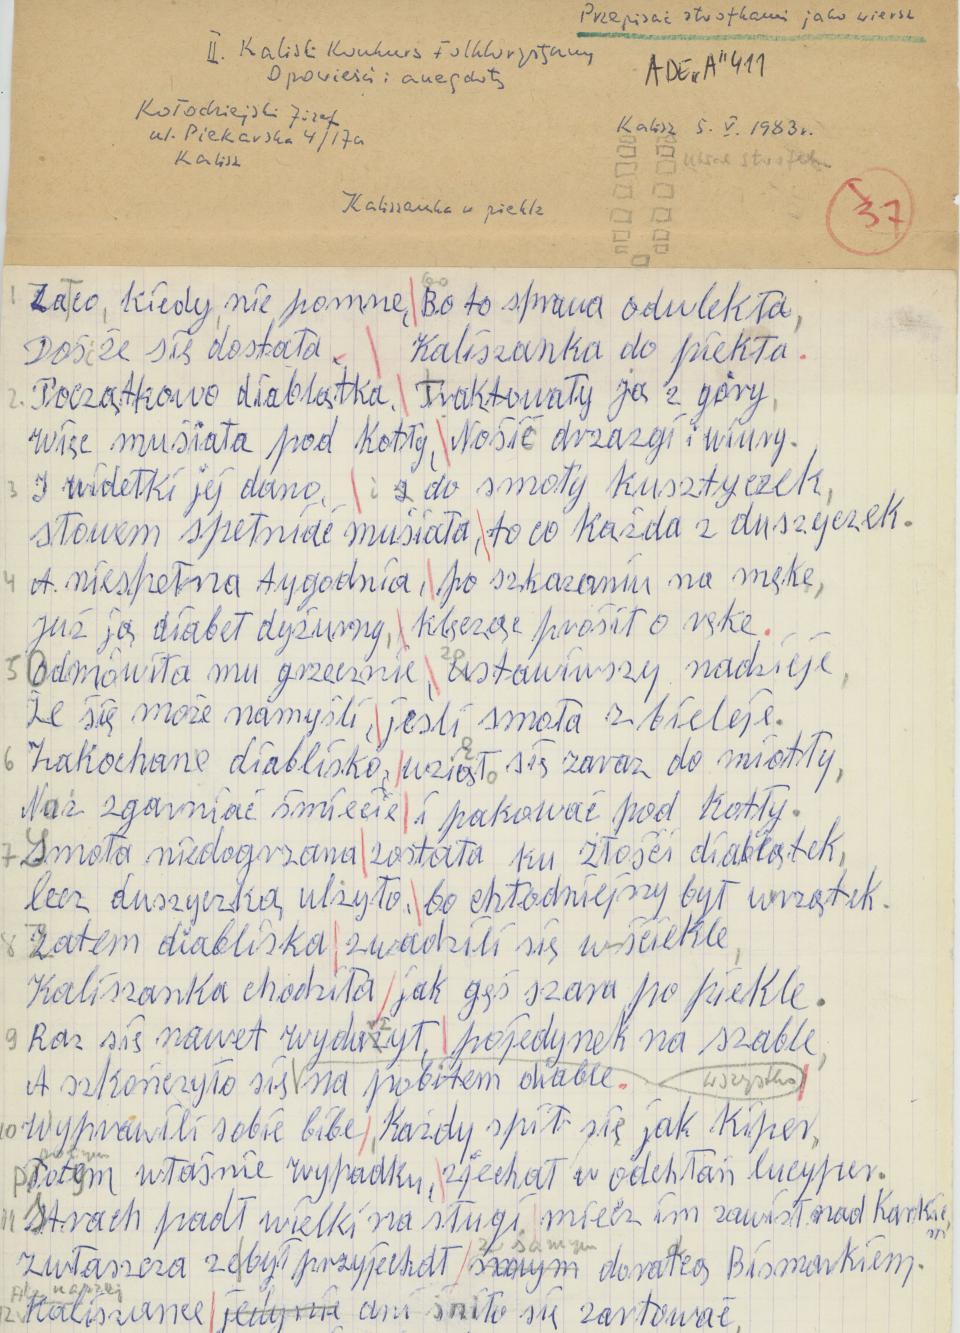 Przepisać strofkami jako wiersz
II. Kaliski Konkurs Folklorystyczny
Opowieści i anegdoty
ADE „A" 411
Kołodziejski Józef
ul. Piekarska 4/17a
Kalisz
Kalisz 5. V. 1983r.
układ strofek
37
Kaliszanka w piekle
1 Za co, kiedy, nie pomnę, / Bo to sprawa odwlekła,
Dość że się dostała, / Kaliszanka do piekła.
2. Początkowo diablątka, / Traktowały ją z góry,
więc musiała pod kotły, / Nosić drzazgi i wiury.
3 I widełki jej dano, / i do smoły kusztyczek,
słowem spełniać musiała, / to co każda z duszyczek.
4 A niespełna tygodnia, / po szkazaniu na mękę,
już ją diabeł dyżurny, / klęcząc prosił o rękę.
5 Odmówiła mu grzecznie, / zostawiwszy nadzieję,
Że się może namyśli, / jeśli smoła zbieleje.
6 Zakochane diablisko, / wzięło się zaraz do miotły,
Nuż zgarniać śmiecie / i pakować pod kotły.
7 Smoła niedogrzana / została ku złości diablątek,
lecz duszyczką ulżyło, / bo chłodniejszy był wrzątek.
8 Zatem diabliska / zwadzili się wściekle,
Kaliszanka chodziła / jak gęś szara po piekle.
9 Raz się nawet wydarzył, / pojedynek na szable,
A szkończyło się na pobitem diable. wszystko /
10 Wyprawili sobie bibę, / Każdy spił się jak kiper,
Potem właśnie wypadku, / zjechał w odchłań lucyper.
11 Strach padł wielki na sługi / miecz im zawisł nad karkiem,
Zwłaszcza że był przyjechał / z samym doradcą Bismarkiem.
12 Kaliszance / jedynie ani śniło się żartować,